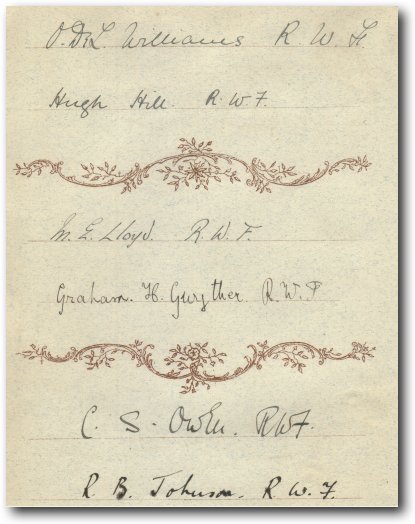 O. De L. Williams R. W. F
Hugh Hill. R. W. F.
M. E. Lloyd. R. W. F.
Graham. H. Gwyther. R. W. F
C. S. Owen. RWF.
R. B. Johnson. R. W. F.